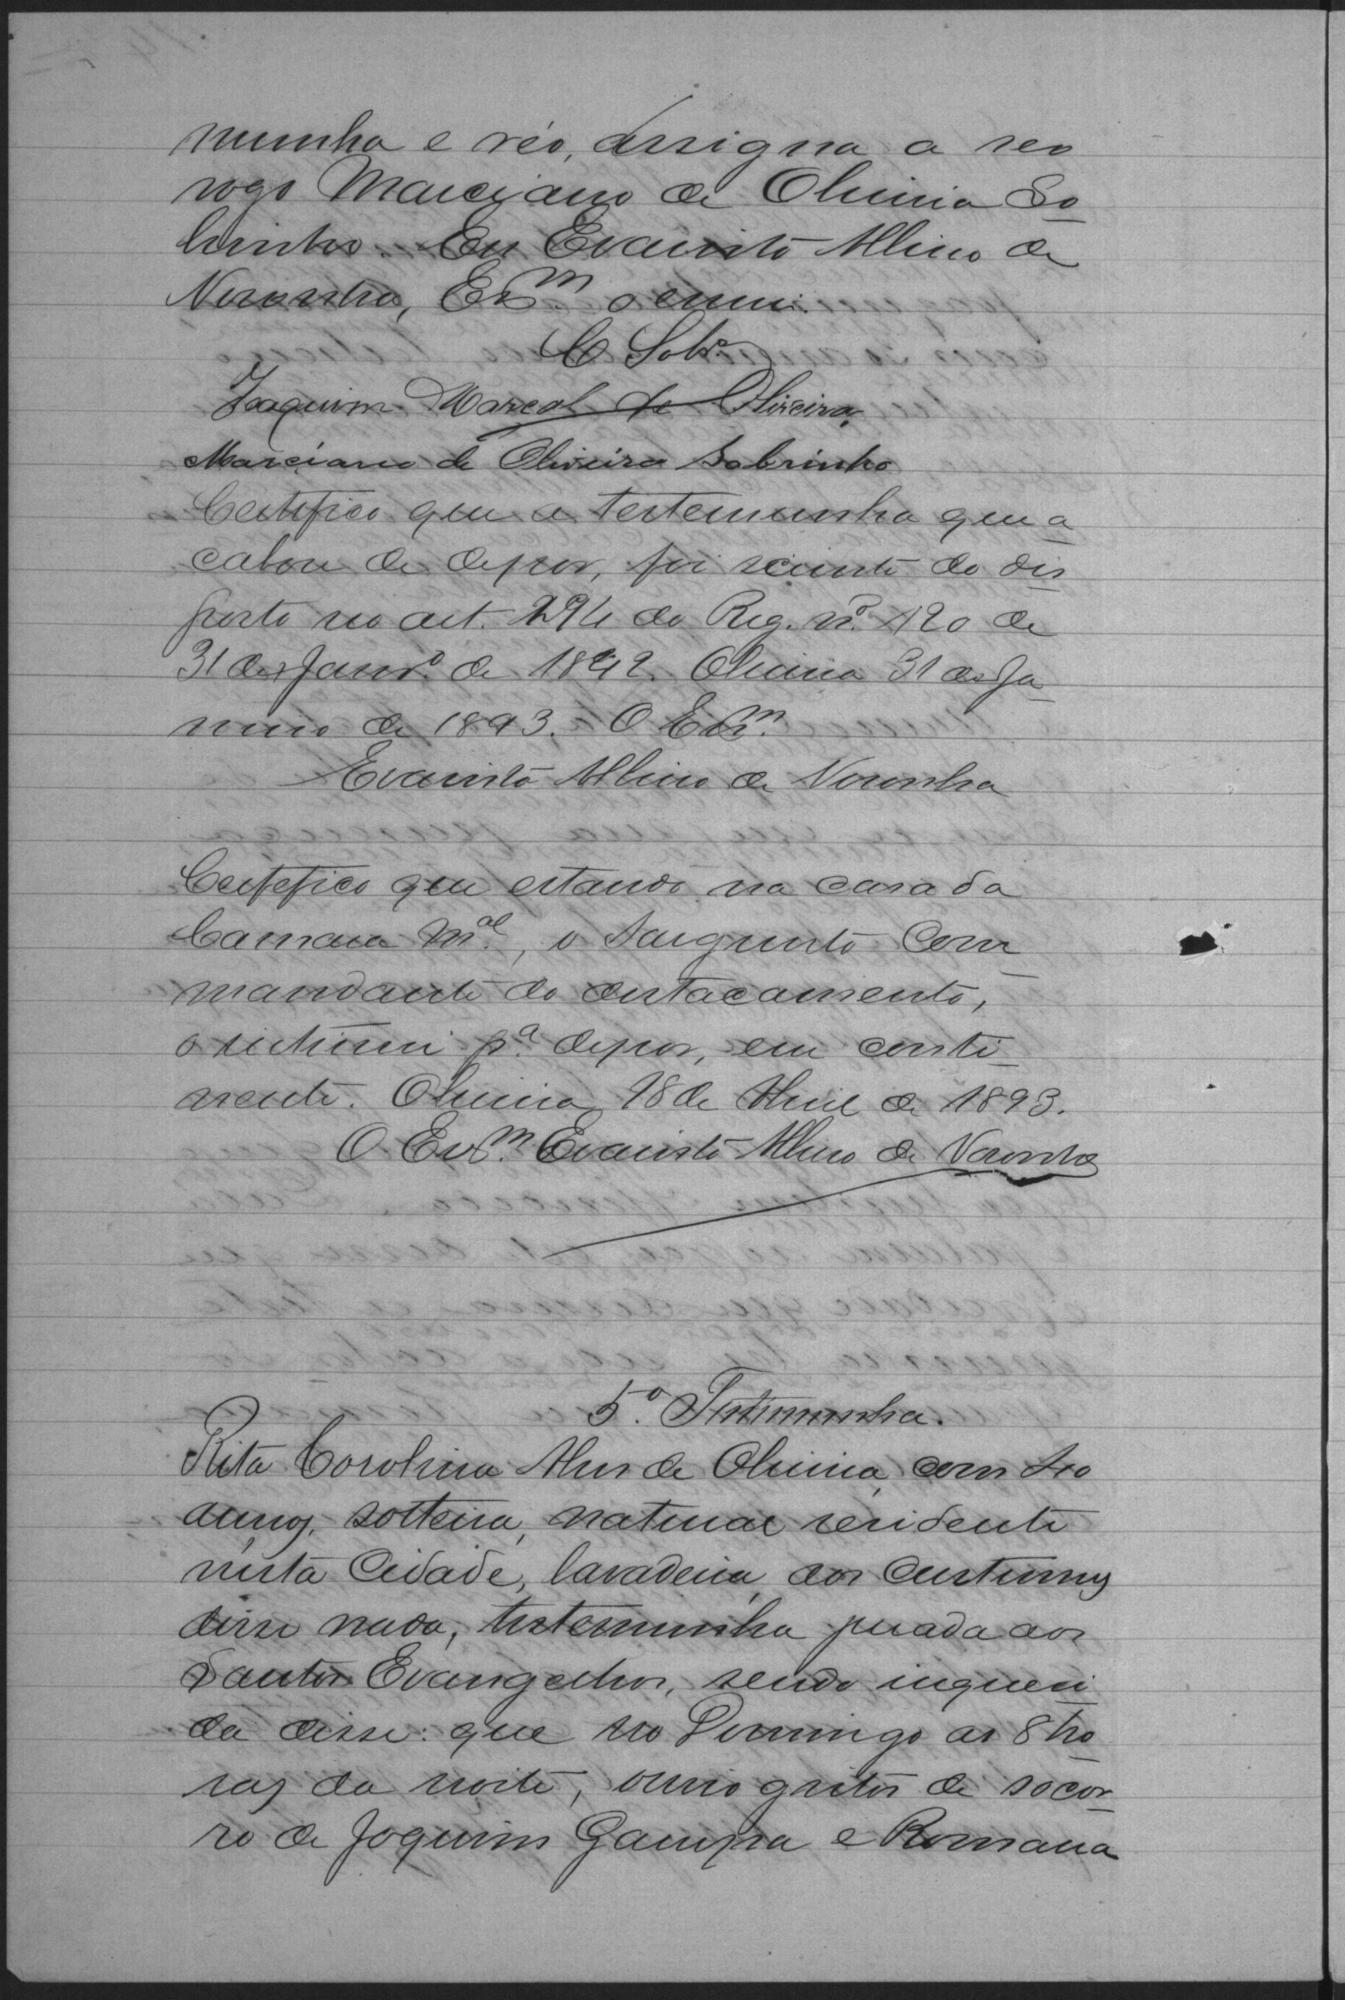 munha e réo, assigna a seo
rogo Marciano de Oliveira So
brinho. Eu Evaristo Albino de
Noronha, Esm. o escrevi.
C Sobr.o
Joaquim Marçal de Oliveira
Marciano de Oliveira Sobrinho
Certifico que a testemunha que a
cabou de depor, foi sciente do dis
posto no art. 294 do Reg. nº 120 de
31 de Janrº de 1842. Oliveira 31 de Ja
neiro de 1893. O Esm.
Evaristo Albino de Noronha
Certefico que estando na casa da
Camara Mal, o Sargento Com
mandante do destacamento,
o intimei pª depor, em conti
nente. Oliveira 18 de Abril de 1893.
O Esm. Evaristo Albino de Noronha
5º Testimunha.
Rita Carolina Alves de Oliveira, com
annos, solteira, natural residente
nesta Cidade, lavadeira, aos custumes
disse nada, testemunha jurada aos
Santos Evangelhos, sendo inqueri
da disse: que no Domingo as 8 ho
ras da noite, ouvio gritos de socor
ro de Joquim e Romana